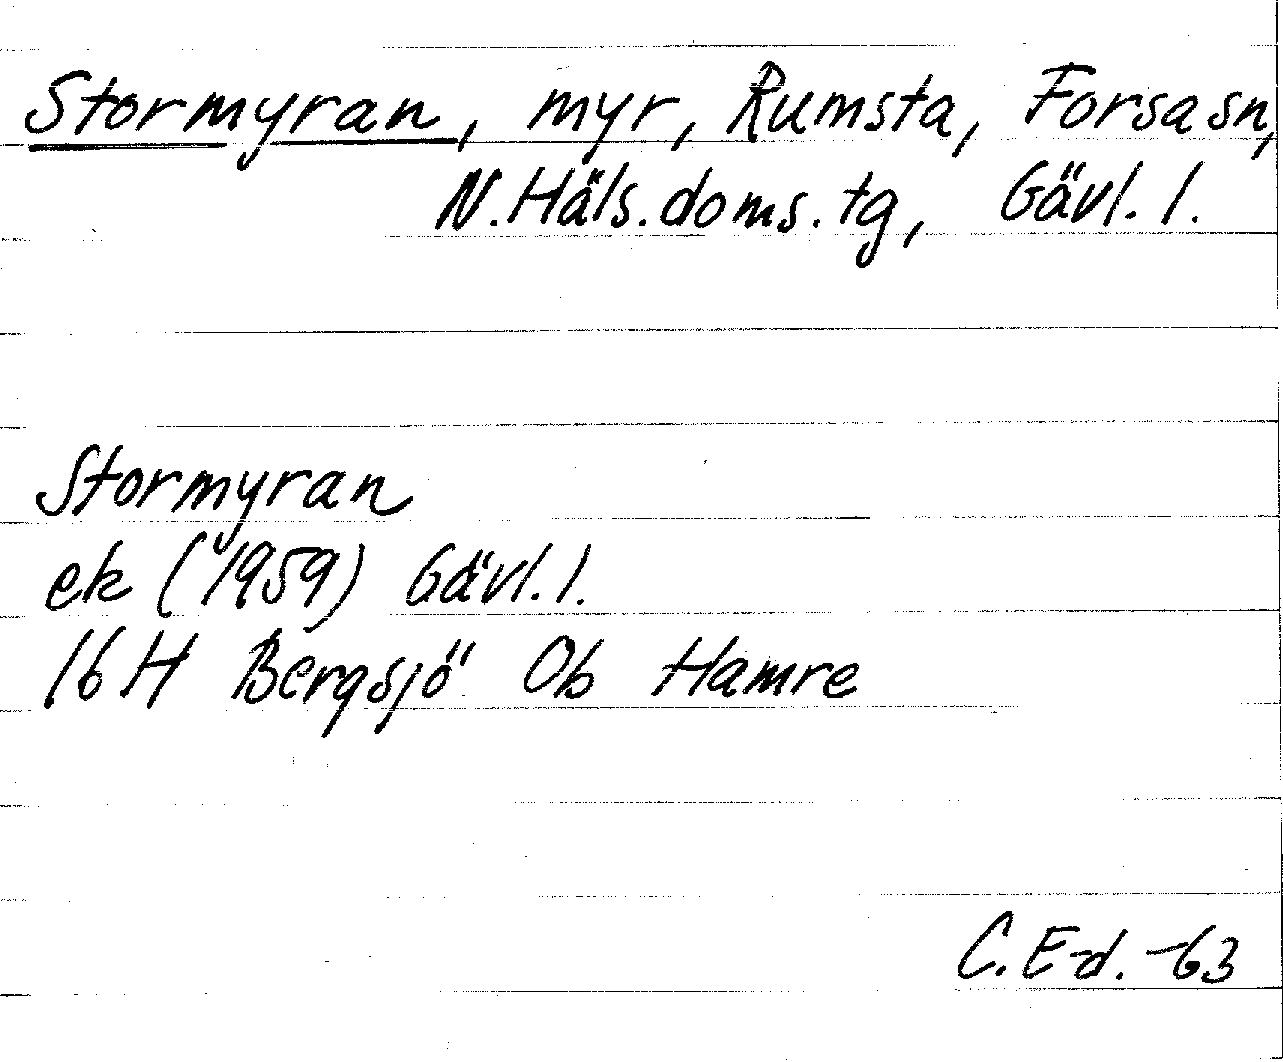 Stormyran, myr, Rumsta, Forsa sn,
N. Häls. doms. tg, Gävl. l.
Stormyran
ek (1959) Gävl. l.
16 H Bergsjö Ob Hamre
C. E-d. -63